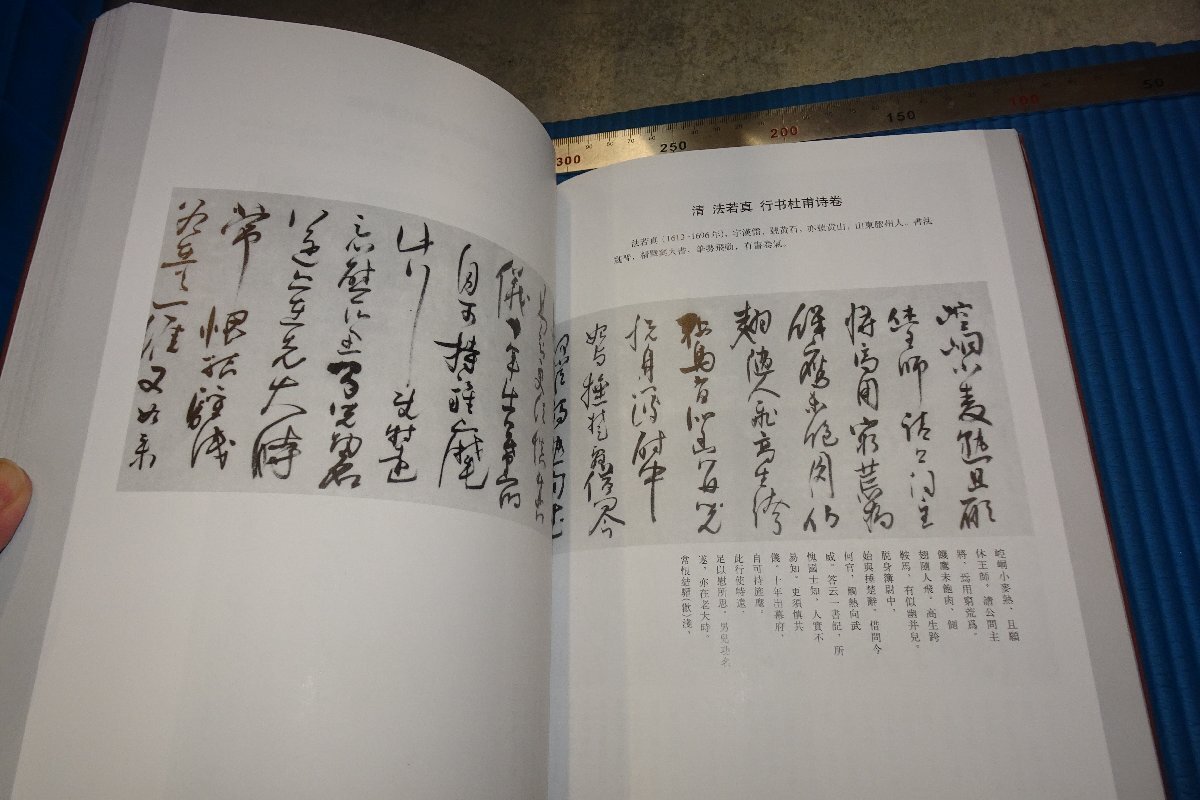 清 法若真 行书杜甫诗卷
法若真（1613-1696年），字漢儒，號黃石，亦號黃山，山東膠州人。書法
冠時，稍暇寫大書，筆勢飛動，有書卷氣。
崆峒小麥熟，且願
休王師。請公問主
將，焉用窮荒爲。
饑鷹未飽肉，側
翅隨人飛。高生跨
鞍馬，有似幽并兒。
脫身簿尉中，
始與捶楚辭。借問今
何官，觸熱向武
威。答云一書記，所
愧國士知。人實不
易知，更須慎其
儀。十年出幕府，
自可持旌麾。
此行使特達，
足以慰所思。男兒功名
遂，亦在老大時。
常恨結驩（歡）淺，
300
250
200
150
100
50